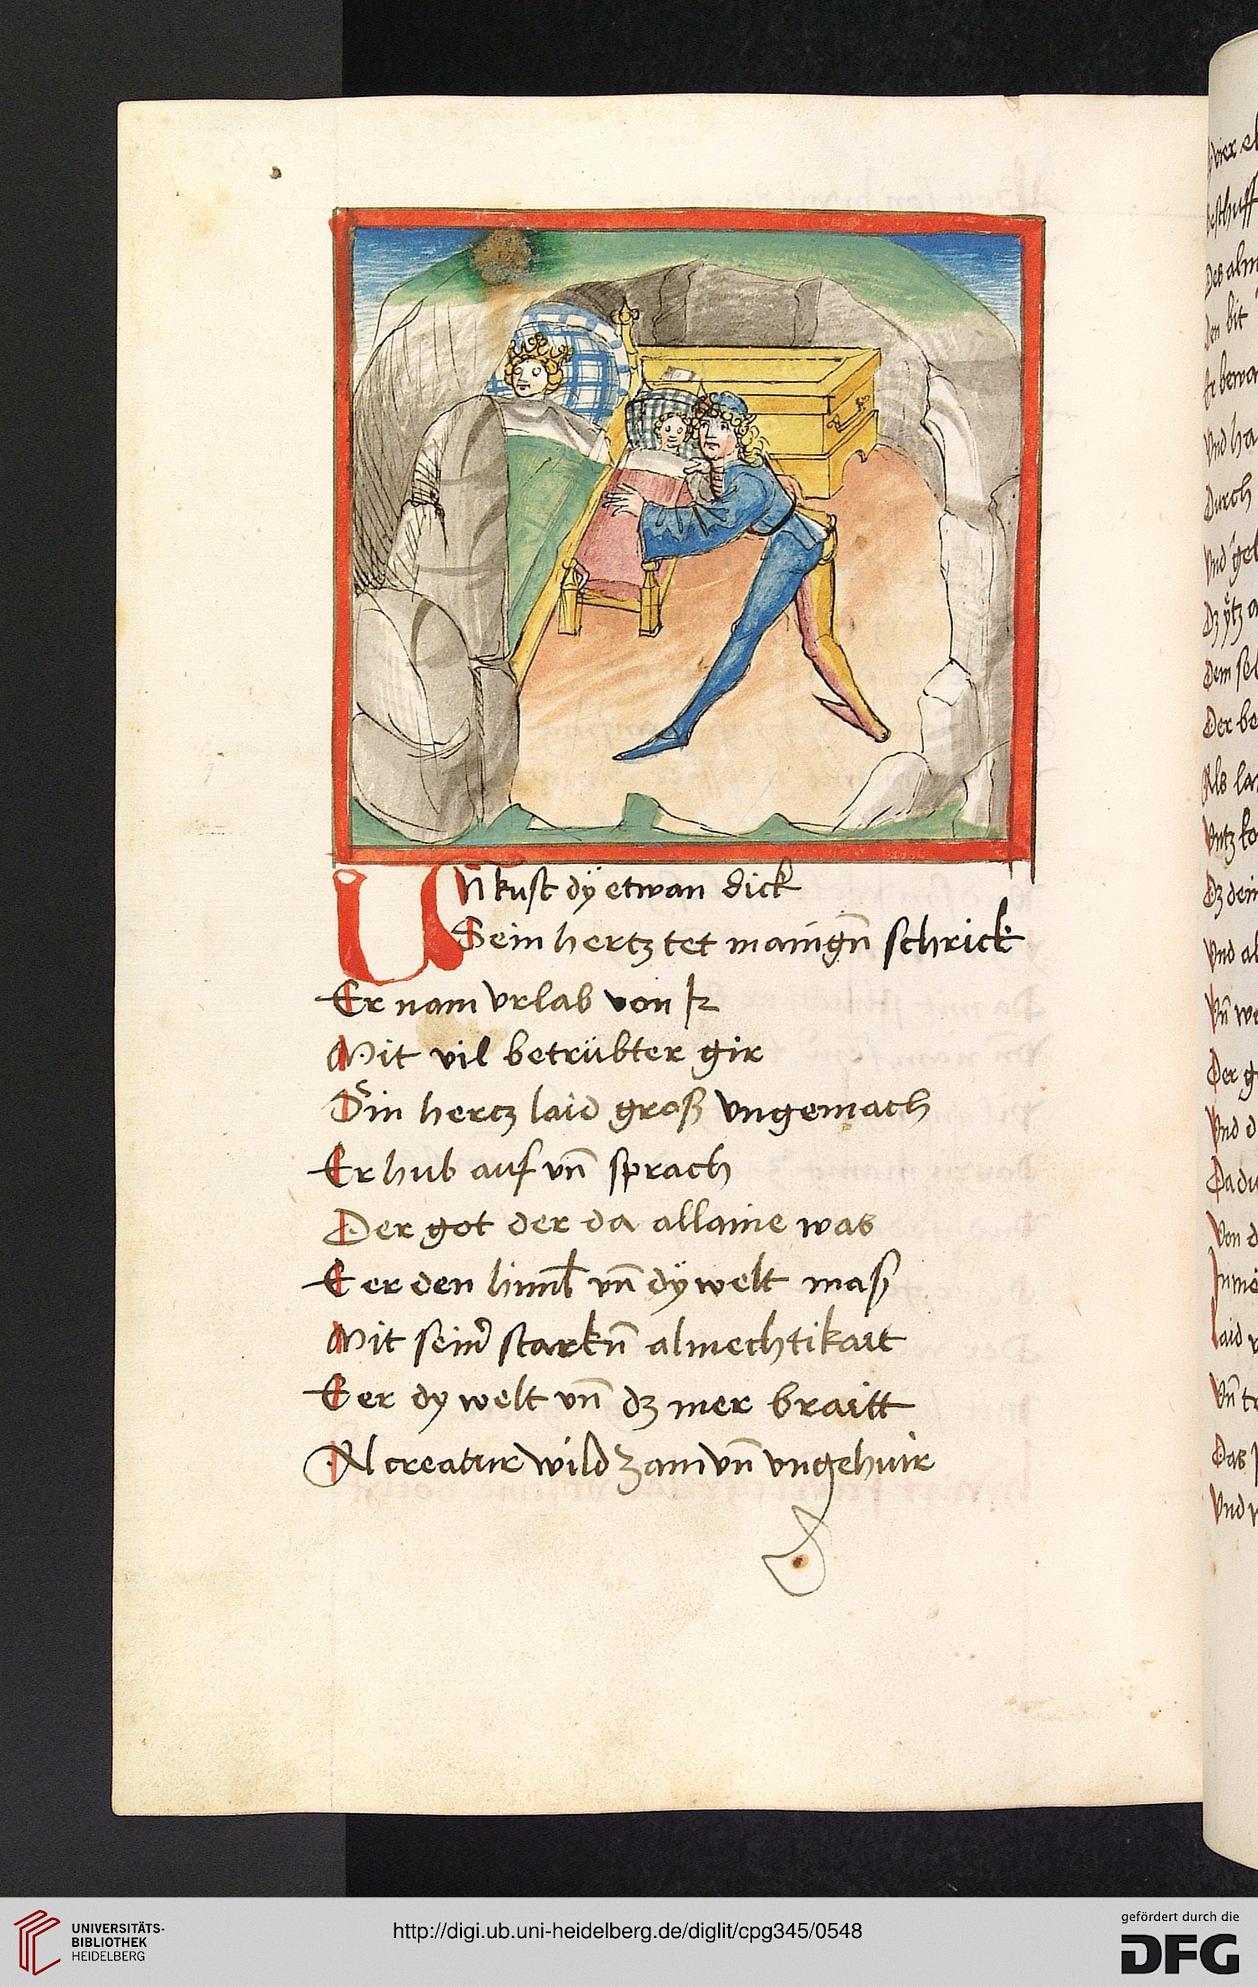 Vn̄ kust dÿ etwan dick
Sein hertz tet manign̄ schrick
Er nam vrlab von ir
Mit vil betrübter gir
Sin hertz laid groß vngemach
Er hub auf vn̄ sprach
Der got der da allaine was
E er den himl vn̄ dÿ welt maß
Mit seinr̄ starkn̄ almechtikait
E er dy welt vn̄ dz mer braitt
Al creatur wild zam vn̄ vngehuir
UNIVERSITÄTS-
BIBLIOTHEK
HEIDELBERG
http://digi.ub.uni-heidelberg.de/diglit/cpg345/0548
gefördert durch die
DFG